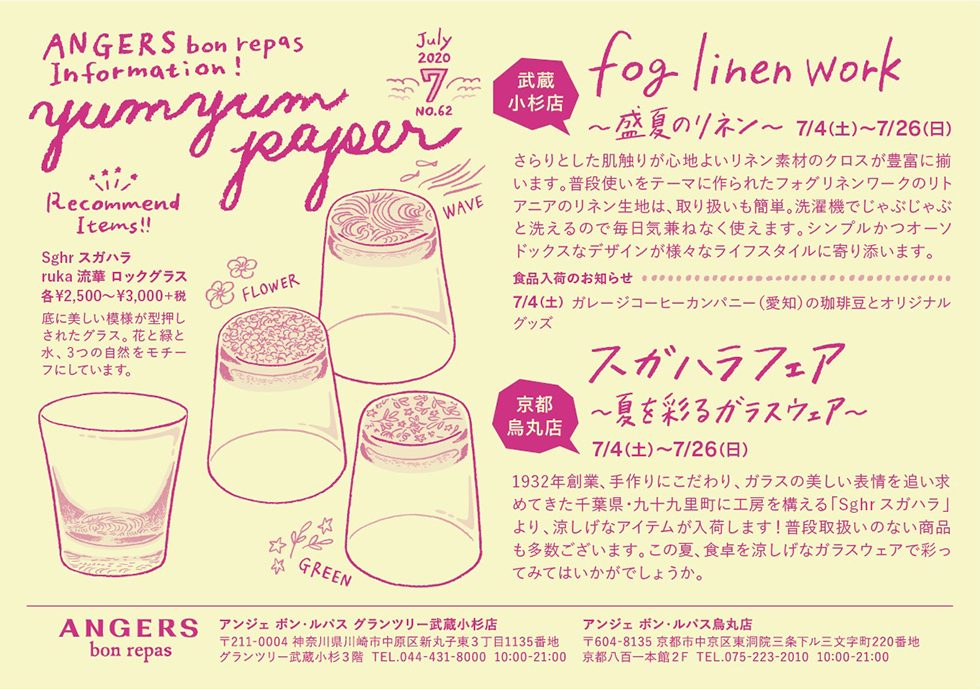 ANGERS bon repas
Information!
yumyum
paper
July
2020
7
NO.62
Recommend
Items!!
Sghr スガハラ
ruka 流華 ロックグラス
各¥2,500〜¥3,000+税
底に美しい模様が型押し
されたグラス。花と緑と
水、3つの自然をモチー
フにしています。
WAVE
FLOWER
GREEN
武蔵
小杉店
fog linen work
〜盛夏のリネン〜 7/4(土)〜7/26(日)
さらりとした肌触りが心地よいリネン素材のクロスが豊富に揃
います。普段使いをテーマに作られたフォグリネンワークのリト
アニアのリネン生地は、取り扱いも簡単。洗濯機でじゃぶじゃぶ
と洗えるので毎日気兼ねなく使えます。シンプルかつオーソ
ドックスなデザインが様々なライフスタイルに寄り添います。
食品入荷のお知らせ
7/4(土) ガレージコーヒーカンパニー(愛知)の珈琲豆とオリジナル
グッズ
京都
烏丸店
スガハラフェア
〜夏を彩るガラスウェア〜
7/4(土)〜7/26(日)
1932年創業、手作りにこだわり、ガラスの美しい表情を追い求
めてきた千葉県・九十九里町に工房を構える「Sghr スガハラ」
より、涼しげなアイテムが入荷します!普段取扱いのない商品
も多数ございます。この夏、食卓を涼しげなガラスウェアで彩っ
てみてはいかがでしょうか。
ANGERS
bon repas
アンジェ ボン・ルパス グランツリー武蔵小杉店
〒211-0004 神奈川県川崎市中原区新丸子東3丁目1135番地
グランツリー武蔵小杉3階 TEL.044-431-8000 10:00-21:00
アンジェ ボン・ルパス烏丸店
〒604-8135 京都市中京区東洞院三条下ル三文字町220番地
京都八百一本館2F TEL.075-223-2010 10:00-21:00